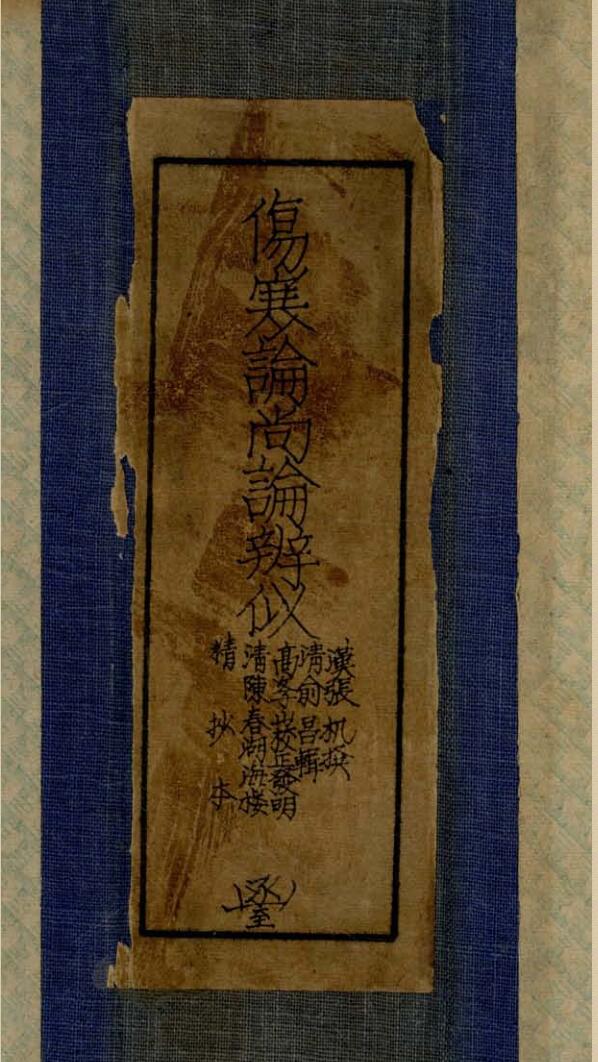 傷寒論尚論辨似
漢張机撰
清俞昌輯
髙學山校正發明
清陳春湖海楼
精抄本